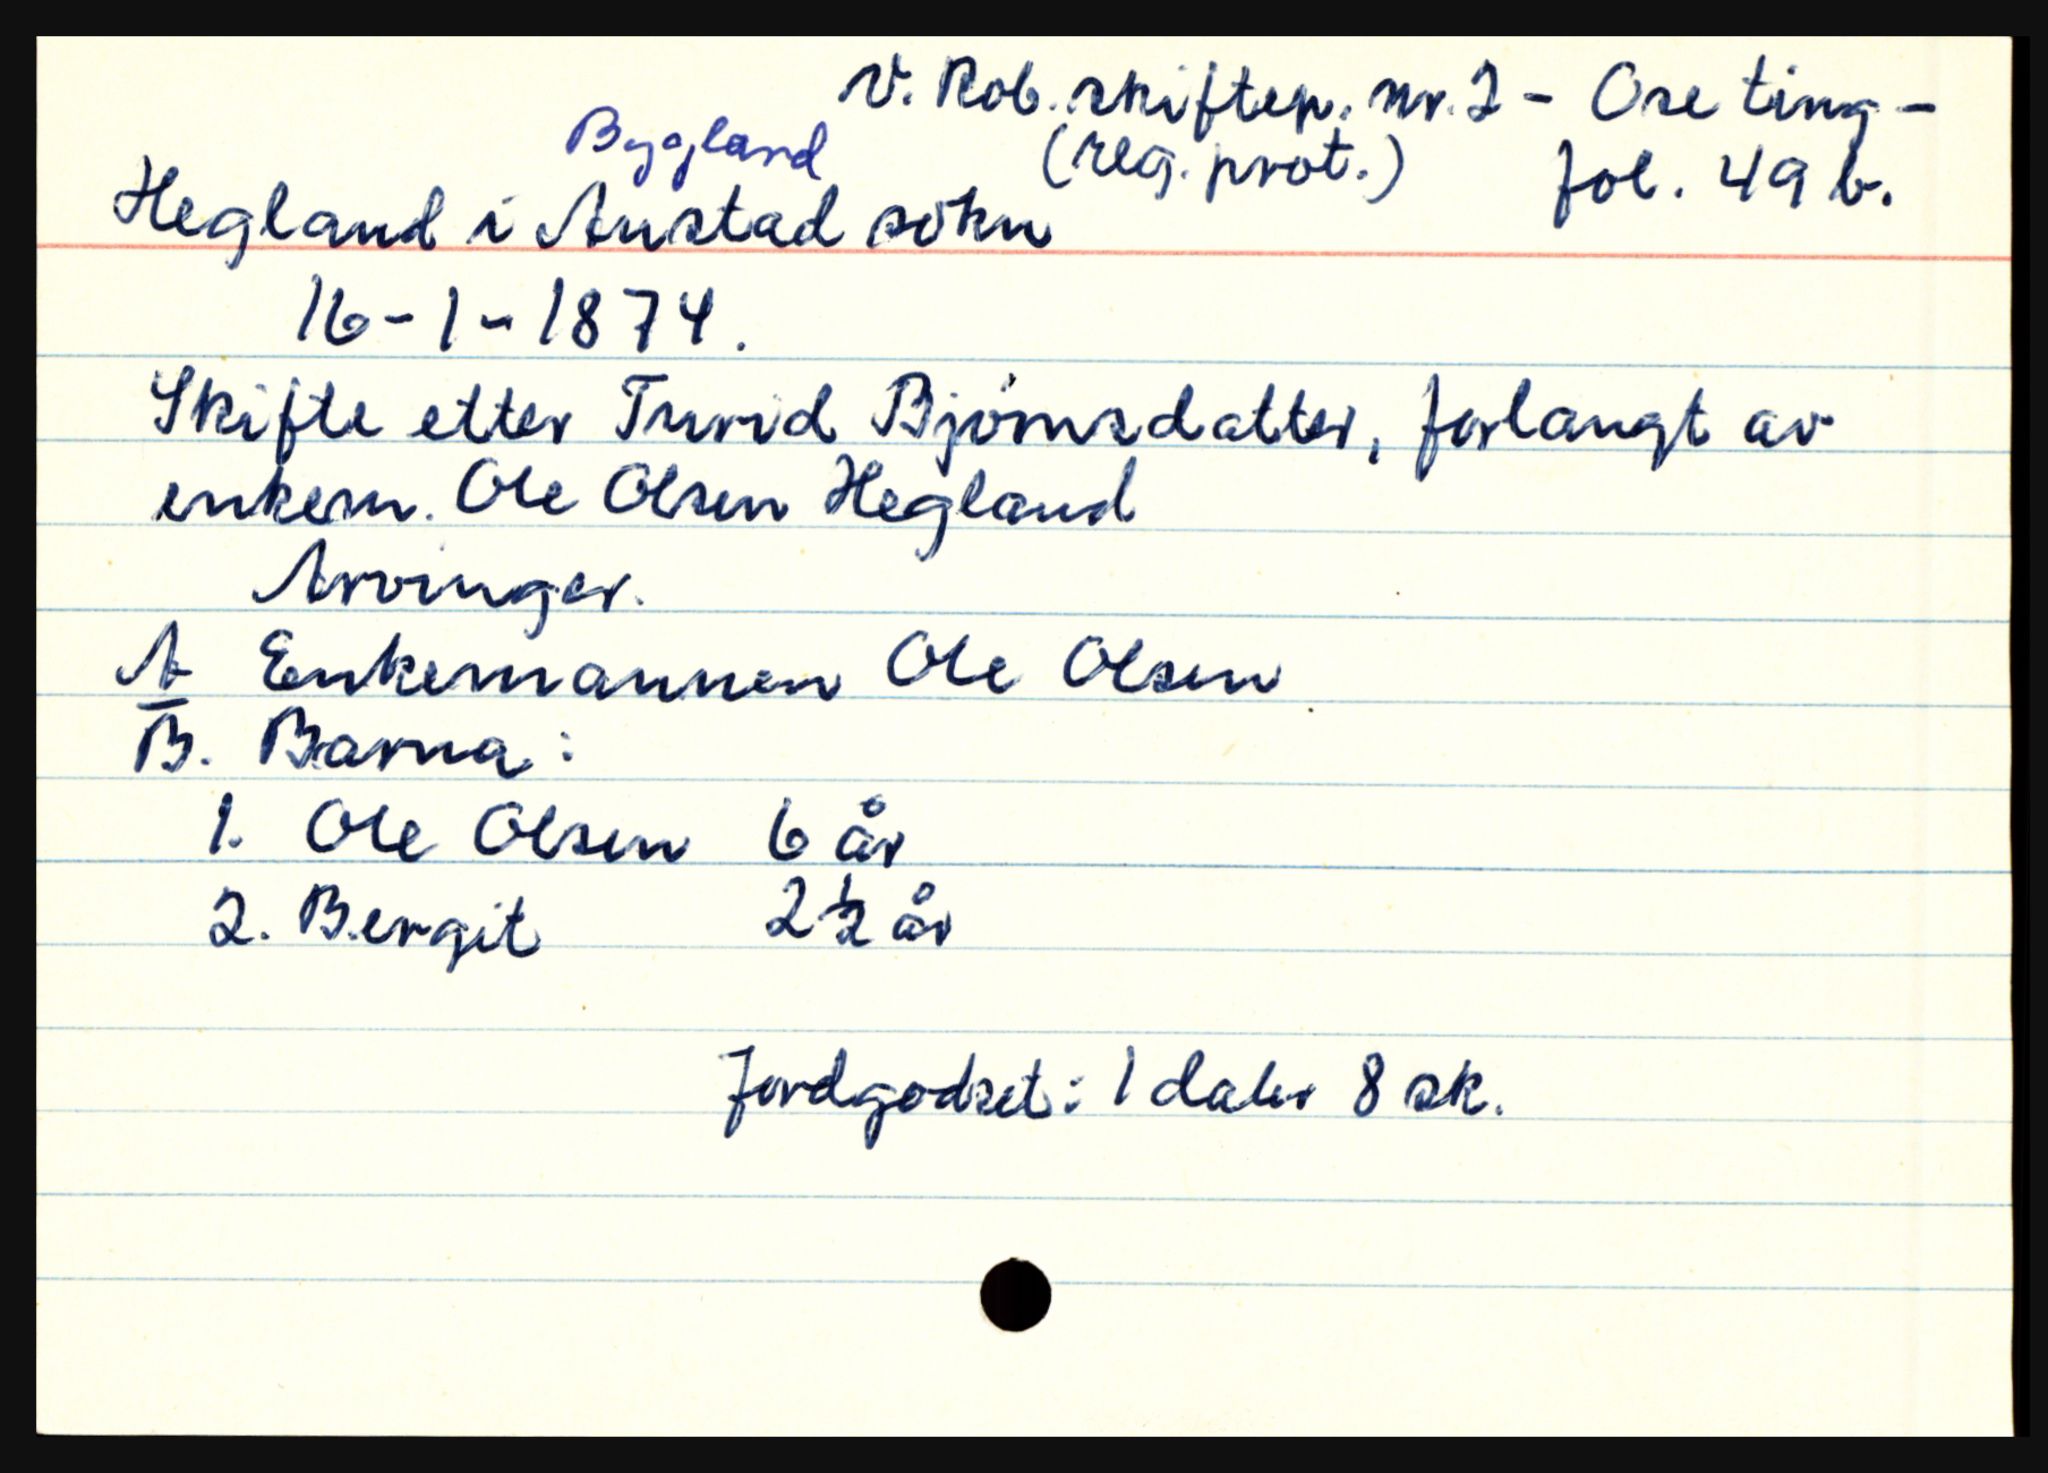 V. Rob. skiftep. nr. 2 - Ose ting -
(reg. prot.) fol. 49 b.
Bygland
Hegland i Austad sokn
16-1-1874.
Skifte etter Turid Bjørnsdatter, forlangt av
enkem. Ole Olsen Hegland
Arvinger.
A Enkemannen Ole Olsen
B. Barna:
1. Ole Olsen 6 år
2. Bergit 2 1/2 år
Jordgodset: 1 daler 8 sk.